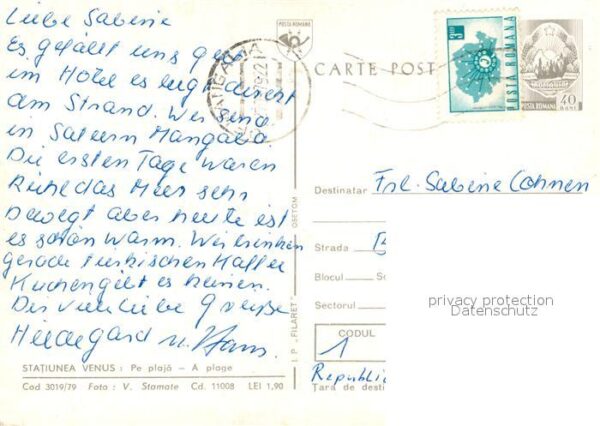 Liebe Sabine
Es gefällt uns gut
im Hotel es liegt direkt
am Strand. Wir sind
in Saturn Mangalia.
Die ersten Tage waren
Kühl das Meer sehr
bewegt aber heute ist
es schön warm. Wir trinken
gerade türkischen Kaffee
Kuchen gibt es keinen.
Dir viele liebe Grüße
Hildegard u. Hans.
STAȚIUNEA VENUS: Pe plajă — A plage
Cod 3019/79 Foto: V. Stamate Cd. 11008 LEI 1,90
I. P. „FILARET"
MANGALIA
POSTA ROMANA
CARTE POST
POSTA ROMANA
POSTA ROMANA 40
BANI
Destinatar Frl. Sabine Cohnen
Strada
Blocul
Sectorul
CODUL
1
Republic
Țara de desti
privacy protection
Datenschutz